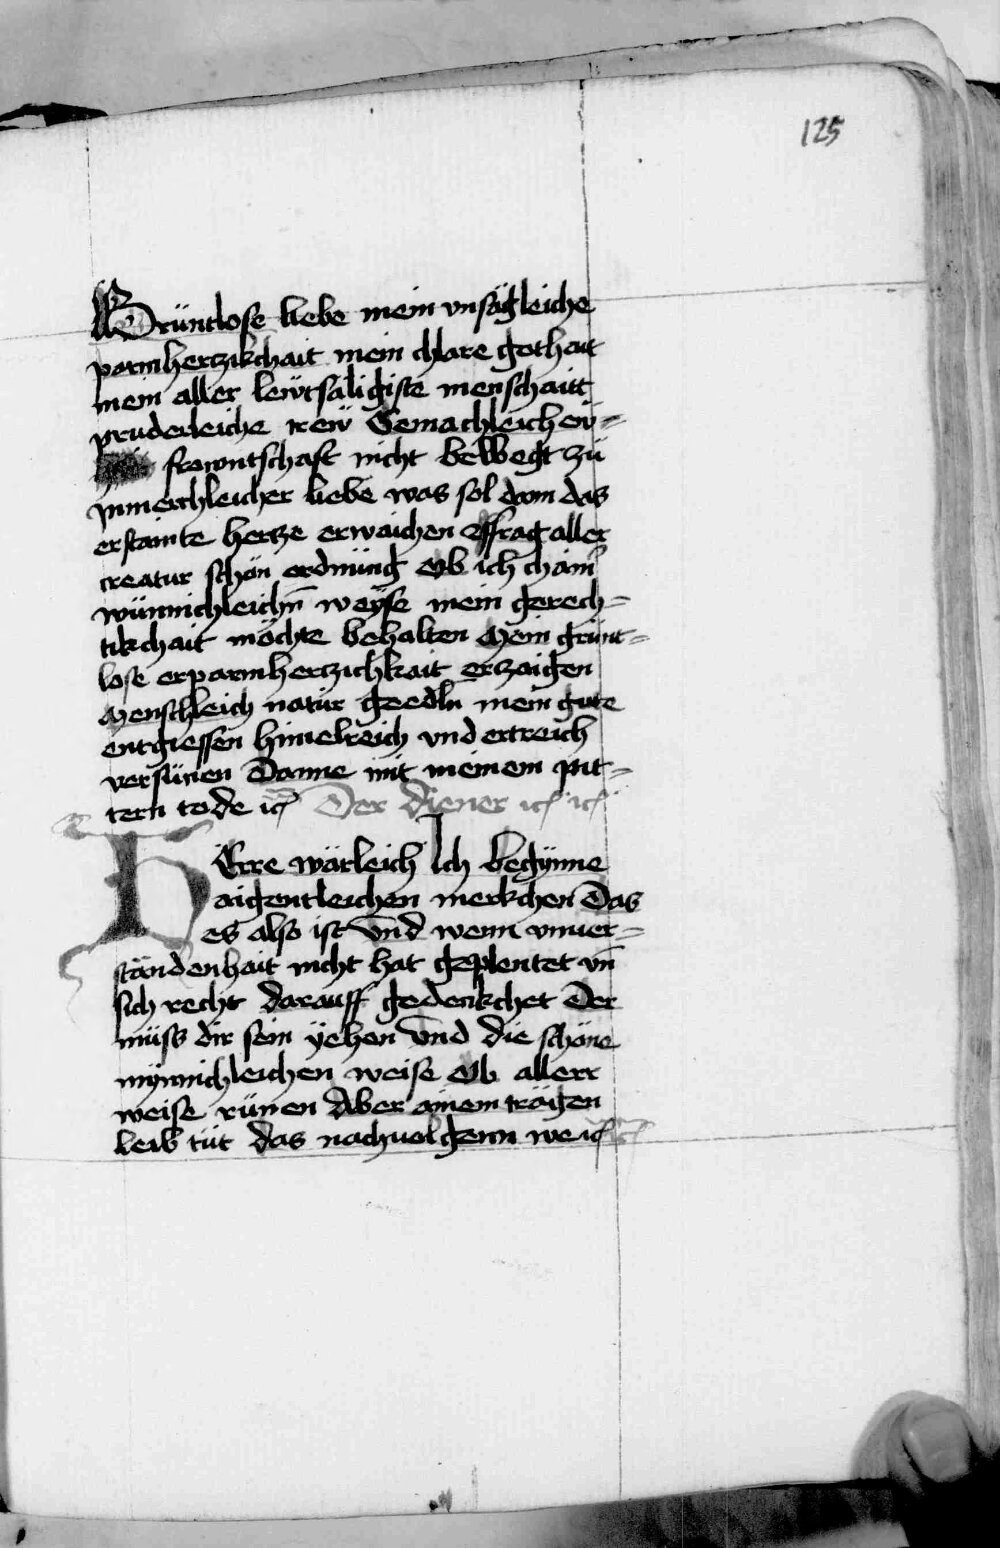 125
Grüntlose liebe mein vnsägleiche
parmherczikchait mein chlare gothait
mein aller lewtsäligiste menschaitt
pruderleiche trew Gemachleich ew=
frewntschaft nicht bewegt zü
ynnerchleicher liebe was sol dann das
erstainte hertze erwaichen ffrag aller
creatur schön ordnüng Ob ich chainer
wünnichleichn̄ weyse mein gerech=
tikchait möchte behalten Mein grünt=
lose erparmherczichkait erzaigen
Menschleich natür geedln mein güte
entgiessen himelreich vnd ertreich
versünen Danne mit meinem pit=
tern tode ich Der diener ich ich
HErre wärleich Ich begÿnne
aigentleichen merkchen Das
es also ist vnd wenn vnuer=
ständenhait nicht hat geplentet vn̄
sich recht darauff gedenkchet Der
müss dir sein ÿehen vnd die schöne
mynnichleichen weise Ob allerr
weise rümen Aber ainem trägen
leib tüt das nachuolgenn we ich